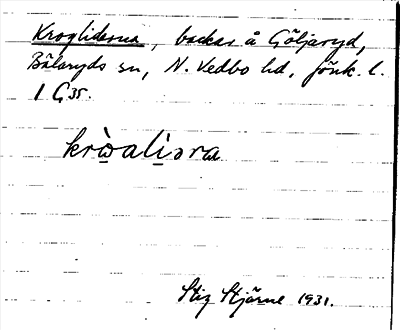 Krogliderna, backar å Göljaryd,
Bälaryds sn, N. Vedbo hd, Jönk. l.
1 G35.
kròaliəra
Stig Stjärne 1931.